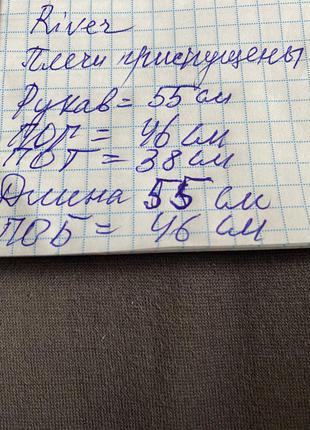 River
Плечи приспущены
Рукав = 55 см
ПОГ = 46 см
ПОТ = 38 см
Длина 55 см
ПОБ = 46 см